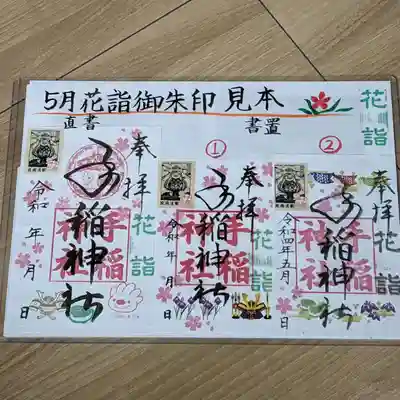 5月花詣御朱印見本
直書
書置
花詣
①
②
奉拝
手稲神社
手稲神社
花詣
令和 年 月 日
奉拝
手稲神社
手稲神社
花詣
令和 年 月 日
奉拝
手稲神社
手稲神社
花詣
令和四年五月 日